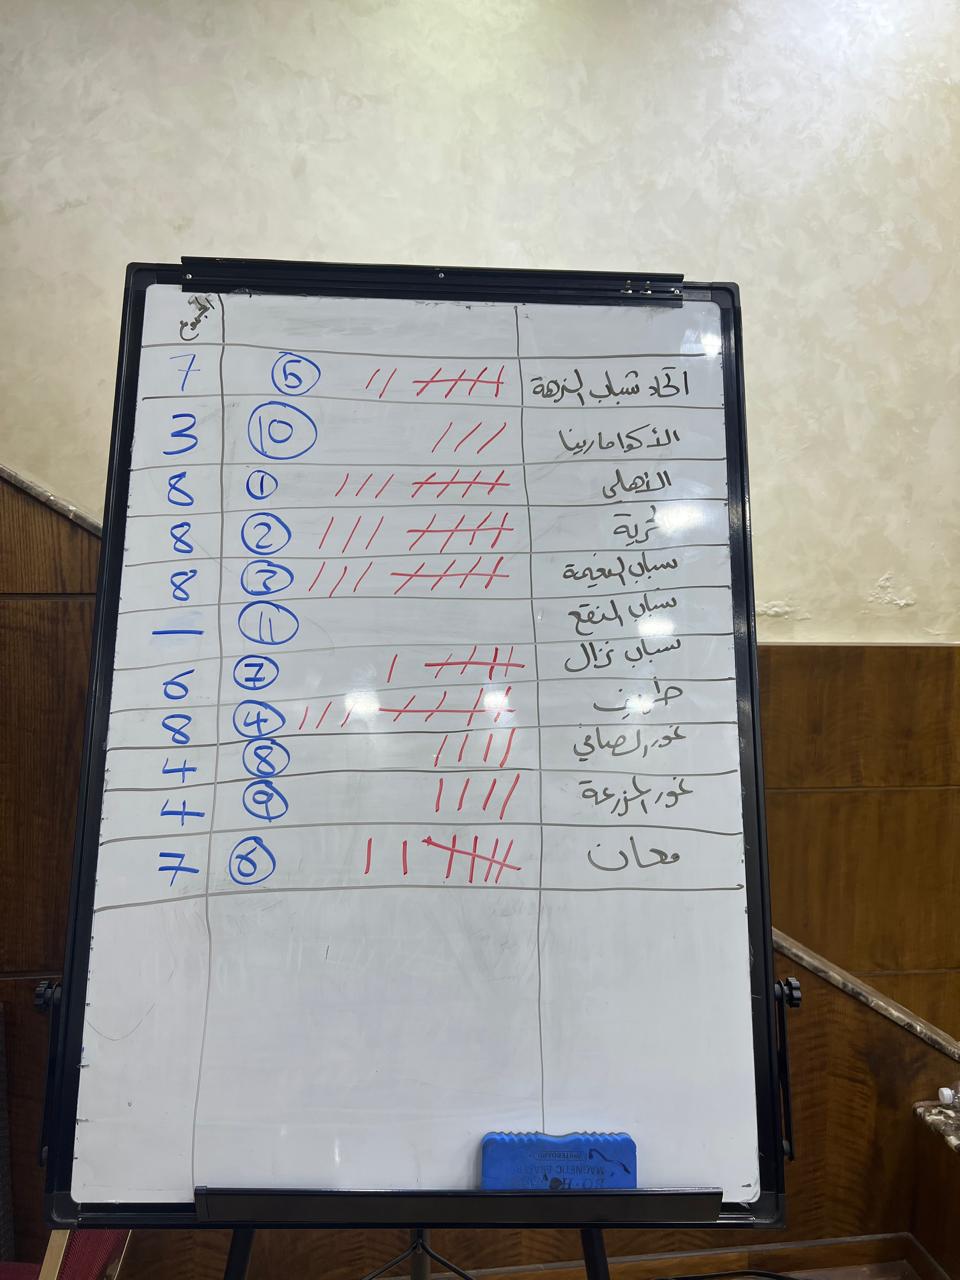 المجموع
اتحاد شباب النزهة 5 7
الأكوامارينا 10 3
الأهلي 1 8
الحرية 2 8
شباب النعيمة 3 8
شباب المنقع 11 —
شباب نزال 7 6
4 8
غور الصافي 8 4
غور المزرعة 9 4
معان 6 7
WHITEBOARD
MAGNETIC ERASER